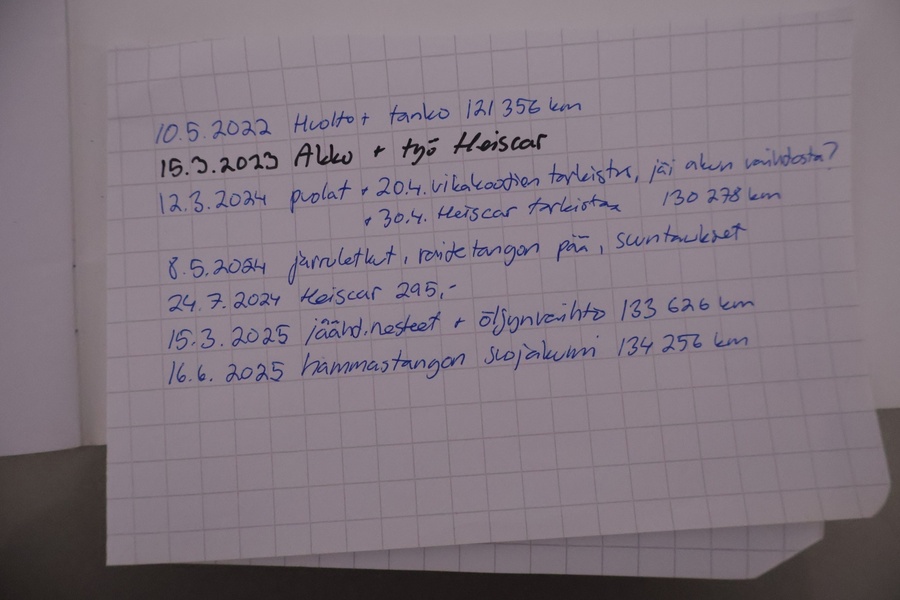 10.5.2022 Huolto + tanko 121 356 km
15.3.2023 Akko + työ Heiscar
12.3.2024 puolat + 20.4. vikakoodien tarkistus, jäi akun vaihdosta?
+ 30.4. Heiscar tarkistaa 130 278 km
8.5.2024 jarruletkut, raidetangon pää, suuntaukset
24.7.2024 Heiscar 295,-
15.3.2025 jäähd.nesteet + öljynvaihto 133 626 km
16.6.2025 hammastangon suojakumi 134 256 km